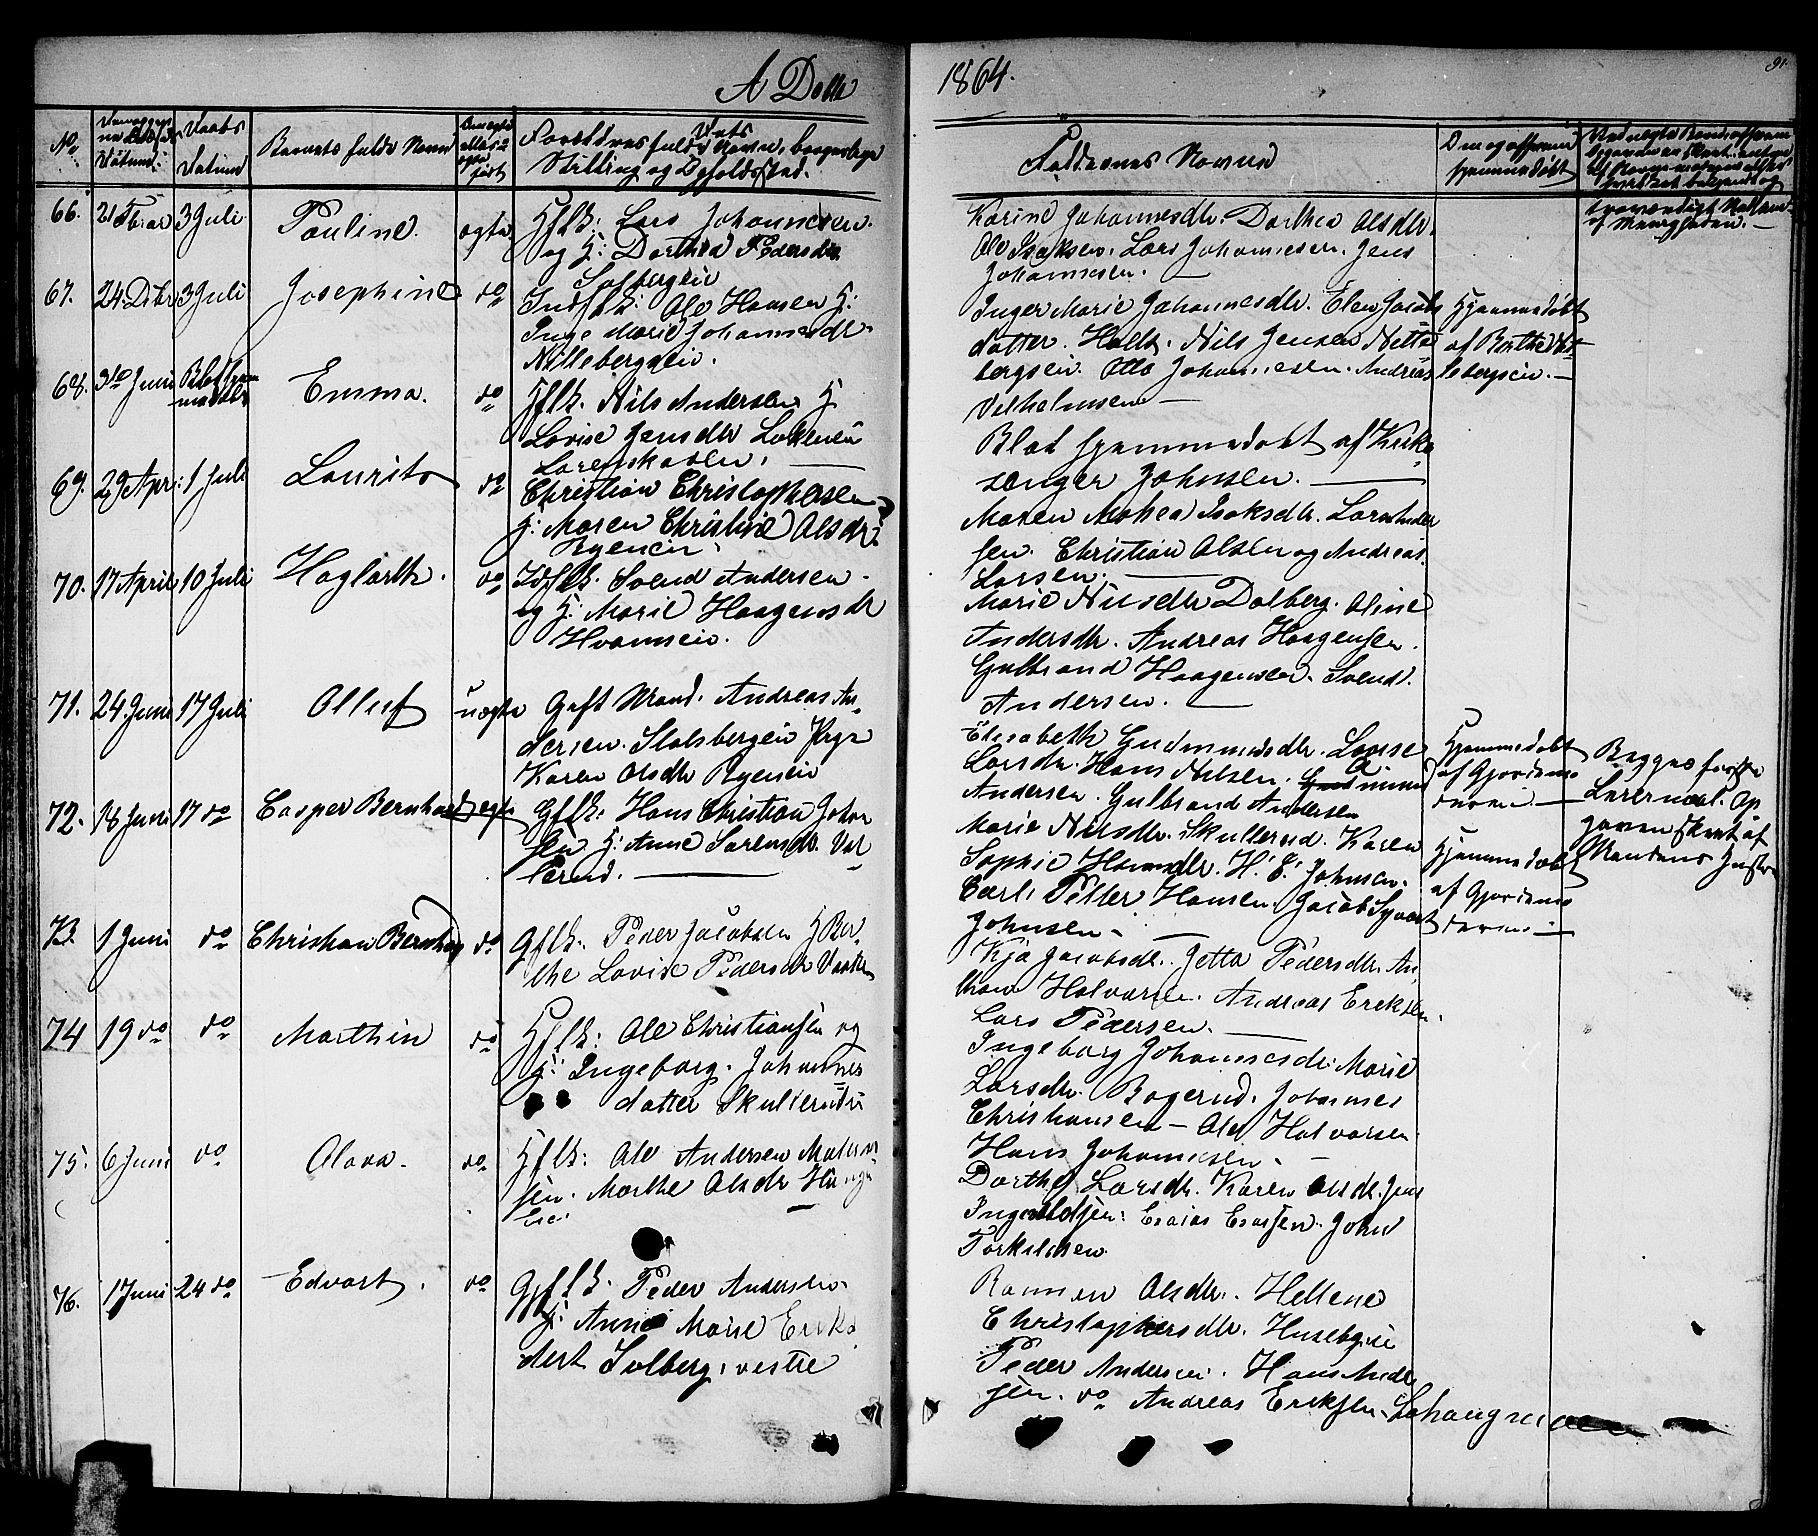 A Døbte
1864.
91.
No.
Daabs
Datum
Barnets fulde Navn
Forældres fulde Navn, borgerlige
Stilling og Opholdssted.
Faddernes Navne
Om og af hvem
hjemmedøbt
66.
3 Juli
Pauline.
ægte
Gflk: Lars Johannesen.
og H: Dorthea Pedersdr
Solbergeie
Karine Johannesdr. Dorthea Olsdr.
Ole Isaksen. Lars Johannesen. Jens
Johannesen.
67.
24 Dcbr
3 Juli
Josephine
do
Indflk: Ole Hansen H:
Inge Marie Johannesdr.
Nitteberggeie.
Inger Marie Johannesdr. Elen Jacobs
datter. Holts. Nils Jensen Nitte
bergeie. Otto Johannesen. Andreas
Vilhelmsen
Hjemmedøbt
af Berthe
68.
3die Juni
Emma.
do
Gflk. Nils Andersen H.
Lovise Jensdr Løkeneie
Lørenskoven.
Blot hjemmedøbt af Kirke
sanger Johnsen.
69.
29 Apr:
1 Juli
Laurits
do
Christian Christophersen
H: Maren Christine Olsdr.
Ryeneie.
Maren Mathea Isaksdr. Lars Ander
sen. Christian Olsen og Andreas
Larsen.
70.
17 April
10 Juli
Haglarth.
do
Idflk. Svend Andersen.
og H. Marie Haagensdr
Hvameie.
Marie Nilsdr Dalberg. Oline
Andersdr. Andreas Haagensen.
Gulbrand Haagensen. Svend
Andersen.
71.
24 Juni
17 Juli
Olluf
uægte
Gift Mand. Andreas An-
dersen. Stalsbergeie Pige
Karen Olsdr Ryeneie
Elisabeth Gudmundsdr. Lovise
Larsdr. Hans Nilsen.
Andersen. Gulbrand Andersen
Hjemmedøbt
af Gjordemo
deren.
Begges første
Leiermaal. Op
gaven skeet af
Mandens Søster
72.
18 Juni
17 do
Casper Bernhard
ægte
Gflk. Hans Christian Johan
sen H: Anne Sørensdr. Val-
lerud.
Marie Nilsdr. Skullerud. Karen
Sophie Hansdr. H. E. Johnsen.
Carl Petter Hansen. Jacob Syvert
Johnsen.
Hjemmedøbt
af Gjordemo
deren.
73.
1 Juni
do
Christian Bernhard
do
Gflk: Peder Jacobsen H Ber-
the Lovise Pedersdr
Kja Jacobsdr. Jetta Pedersdr. An
thon Halvorsen. Andreas Ericksen.
Lars Pedersen.
74
19 do
do
Marthin
do
Gflk: Ole Christiansen og
H: Ingeborg. Johannes
datter Skullerudeie
Ingeborg Johannesdr. Marie
Larsdr. Bogerud. Johannes
Christiansen - Ole Halvorsen.
Hans Johannesen.
75.
6 Juni
do
Olava.
do
Gflk: Ole Andersen
Marthe Olsdr
Dorthe Larsdr. Karen Olsdr. Jens
Ingvoldsen. Esaias Esaisen. John
Torkildsen
76.
17 Juni
24 do
Edvart.
do
Gflk. Peder Andersen.
H: Anne Marie Ericks
datt Solberg vestre
Olsdr. Hellene
Christophersdr. Husebyeie
Peder Andersen. Hans Ander
sen. do Andreas Ericksen.